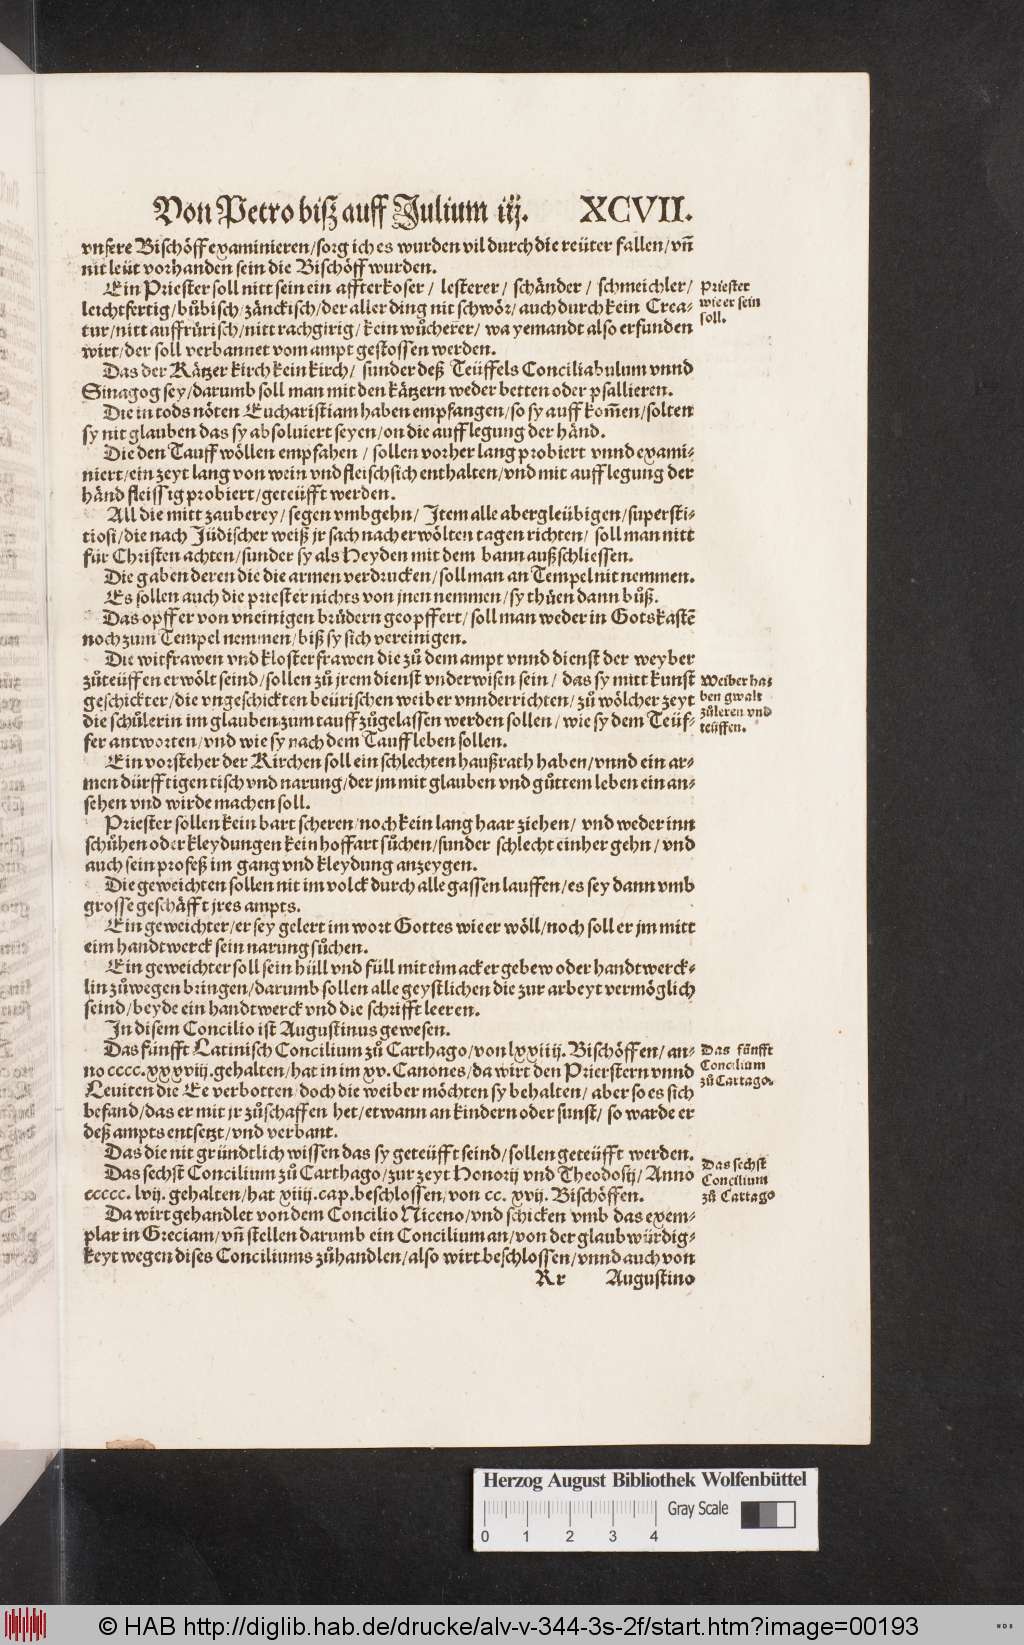 Von Petro biß auff Julium iij. XCVII.
vnsere Bischöff examinieren/sorg ich es wurden vil durch die reüter fallen/vn̄
nit leüt vorhanden sein die Bischöff wurden.
Ein Priester soll nitt sein ein affterkoser / lesterer/ schänder/ schmeichler/
leichtfertig/bůbisch/zänckisch/der aller ding nit schwör/auch durch kein Crea-
tur/nitt auffrürisch/nitt rachgirig/kein wůcherer/ wa yemandt also erfunden
wirt/der soll verbannet vom ampt gestossen werden.
Priester
wie er sein
soll.
Das der Kätzer kirch kein kirch/ sunder deß Teüffels Conciliabulum vnnd
Sinagog sey/darumb soll man mit den kätzern weder betten oder psallieren.
Die in tods nöten Eucharistiam haben empfangen/so sy auff kom̄en/solten
sy nit glauben das sy absoluiert seyen/on die aufflegung der händ.
Die den Tauff wöllen empfahen / sollen vorher lang probiert vnnd exami-
niert/ein zeyt lang von wein vnd fleisch sich enthalten/vnd mit aufflegung der
händ fleissig probiert/geteüfft werden.
All die mitt zauberey/segen vmbgehn/ Item alle abergleübigen/supersti-
tiosi/die nach Jüdischer weiß jr sach nach erwölten tagen richten/ soll man nitt
für Christen achten/sunder sy als Heyden mit dem bann außschliessen.
Die gaben deren die die armen verdrucken/soll man an Tempel nit nemmen.
Es sollen auch die priester nichts von jnen nemmen/sy thüen dann bůß.
Das opffer von vneinigen brüdern geopffert/soll man weder in Gotskastē
noch zum Tempel nemmen/biß sy sich vereinigen.
Die witfrawen vnd klosterfrawen die zů dem ampt vnnd dienst der weyber
zůteüffen erwölt seind/sollen zů jrem dienst vnderwisen sein/ das sy mitt kunst
geschickter/die vngeschickten beürischen weiber vnnderrichten/zů wölcher zeyt
die schůlerin im glauben zum tauff zůgelassen werden sollen/wie sy dem Teüf-
fer antworten/vnd wie sy nach dem Tauff leben sollen.
Weiber ha-
ben gwalt
zůleren vnd
teüffen.
Ein vorsteher der Kirchen soll ein schlechten haußrath haben/vnnd ein ar-
men dürfftigen tisch vnd narung/der jm mit glauben vnd gůttem leben ein an-
sehen vnd wirde machen soll.
Priester sollen kein bart scheren/noch kein lang haar ziehen/ vnd weder inn
schůhen oder kleydungen kein hoffart sůchen/sunder schlecht einher gehn/vnd
auch sein profeß im gang vnd kleydung anzeygen.
Die geweichten sollen nit im volck durch alle gassen lauffen/es sey dann vmb
grosse geschäfft jres ampts.
Ein geweichter/er sey gelert im wort Gottes wie er wöll/noch soll er jm mitt
eim handtwerck sein narung sůchen.
Ein geweichter soll sein hüll vnd füll mit eim ackergebew oder handtwerck-
lin zůwegen bringen/darumb sollen alle geystlichen die zur arbeyt vermöglich
seind/beyde ein handtwerck vnd die schrifft leeren.
In disem Concilio ist Augustinus gewesen.
Das fünfft Latinisch Concilium zů Carthago/von lxxiiij. Bischöffen/an-
no cccc.xxxviij.gehalten/hat in im xv.Canones/da wirt den Prierstern vnnd
Leuiten die Ee verbotten/doch die weiber möchten sy behalten/aber so es sich
befand/das er mit jr zůschaffen het/etwann an kindern oder sunst/ so warde er
deß ampts entsetzt/vnd verbant.
Das fünfft
Concilium
zů Cartago.
Das die nit gründtlich wissen das sy geteüfft seind/sollen geteüfft werden.
Das sechst Concilium zů Carthago/zur zeyt Honorij vnd Theodosij/Anno
ccccc. lvij. gehalten/hat xiiij.cap.beschlossen/von cc. xvij. Bischöffen.
Das sechst
Concilium
zů Cartago
Da wirt gehandlet von dem Concilio Niceno/vnd schicken vmb das exem-
plar in Greciam/vn̄ stellen darumb ein Concilium an/von der glaubwürdig-
keyt wegen dises Conciliums zůhandlen/also wirt beschlossen/vnnd auch von
Rr Augustino
Herzog August Bibliothek Wolfenbüttel
Gray Scale
0 1 2 3 4
© HAB http://diglib.hab.de/drucke/alv-v-344-3s-2f/start.htm?image=00193